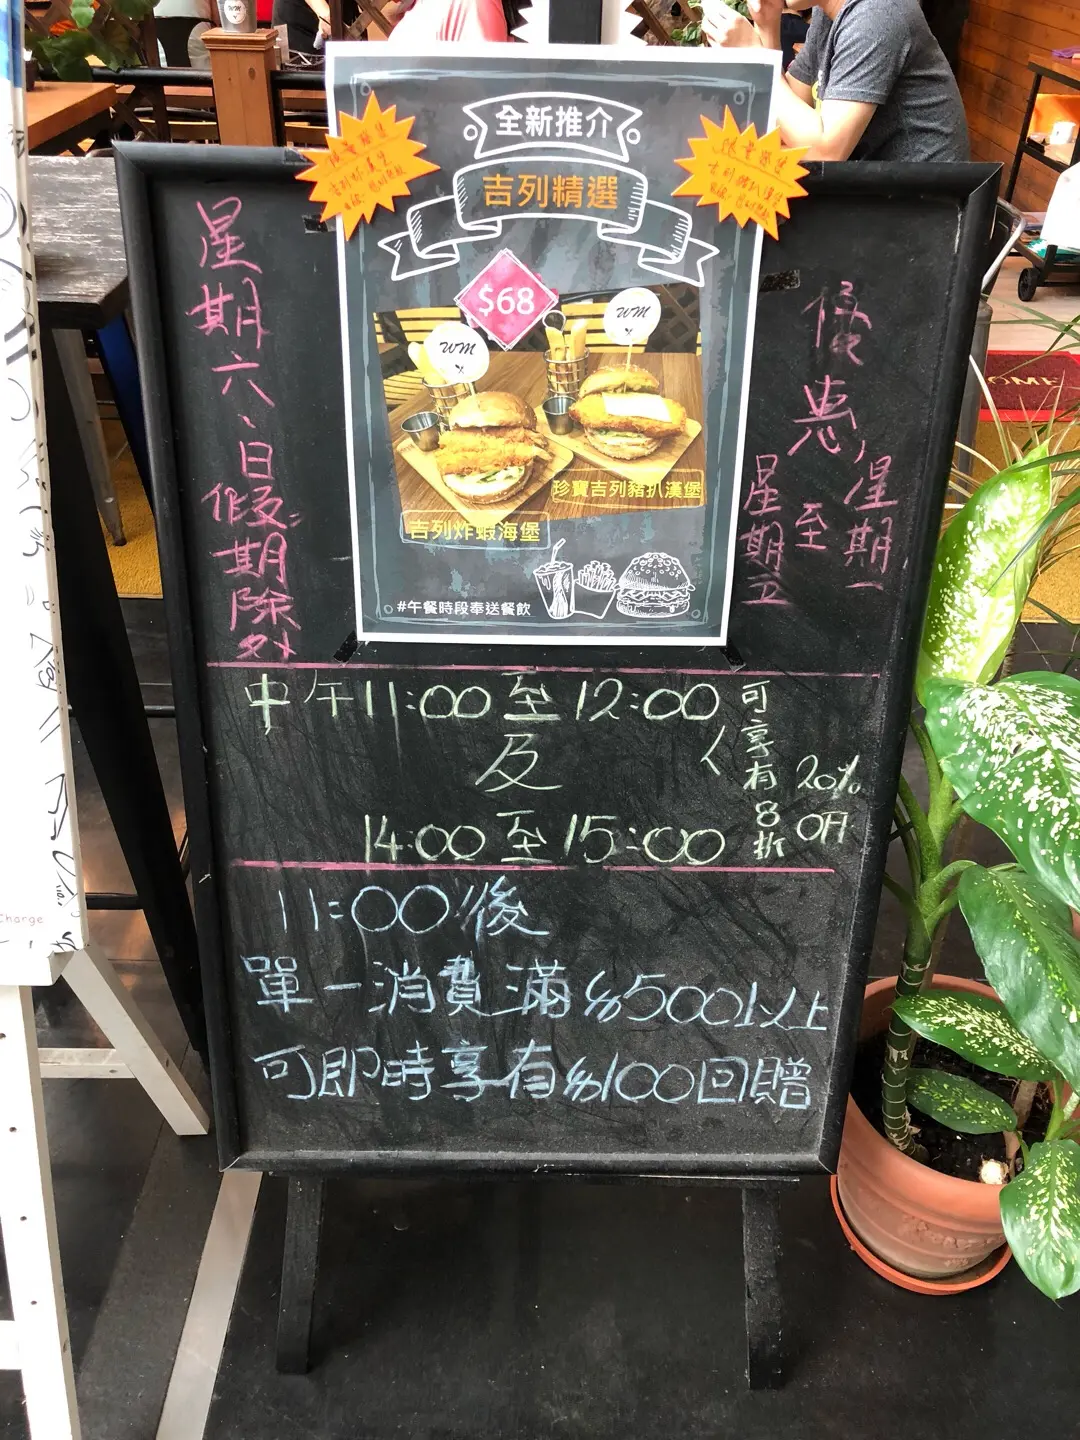 全新推介
吉列精選
$68
WM
WM
珍寶吉列豬扒漢堡
吉列炸蝦海堡
#午餐時段奉送餐飲
優惠，星期一至星期五
星期六、日假期除外
中午11:00至12:00
及
14:00至15:00
可享有8折
20% OFF
11:00後
單一消費滿$500以上
可即時享有$100回贈
Charge
OME